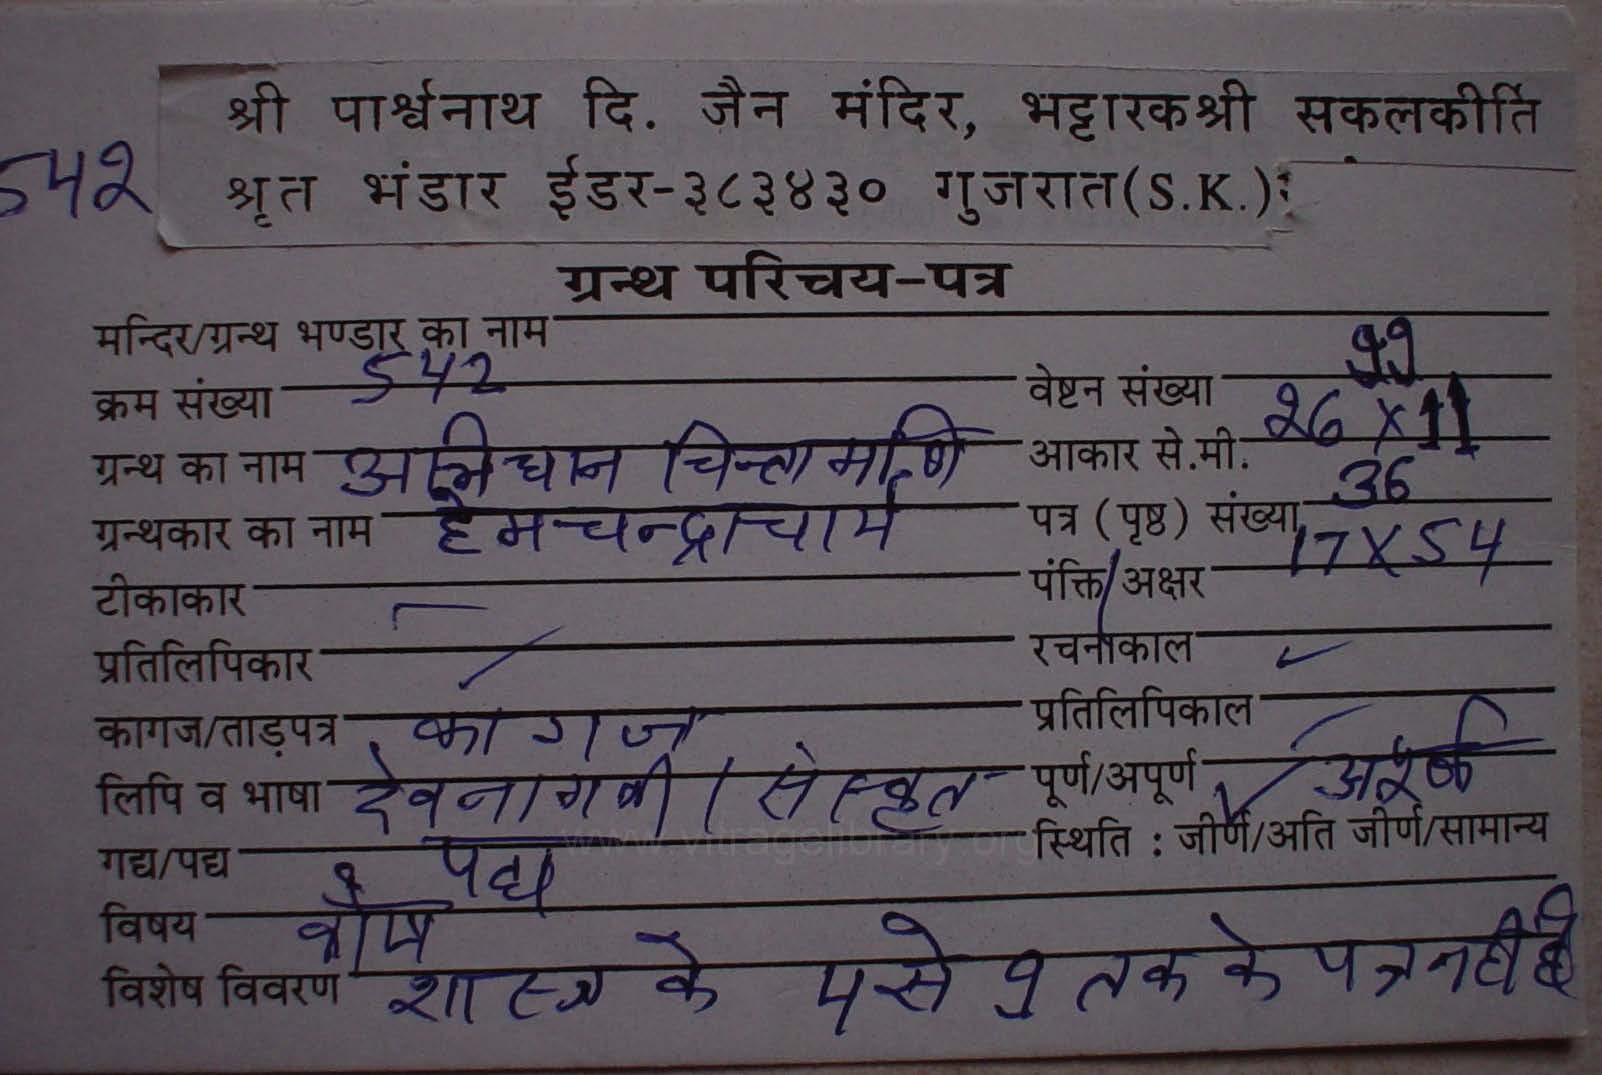 श्री पार्श्वनाथ दि. जैन मंदिर, भट्टारकश्री सकलकीर्ति
542 श्रृत भंडार ईडर-३८३४३० गुजरात(S.K.):
ग्रन्थ परिचय-पत्र
मन्दिर/ग्रन्थ भण्डार का नाम
क्रम संख्या 542 वेष्टन संख्या
ग्रन्थ का नाम अभिधान चिन्तामणि आकार से.मी. 26 X 11
ग्रन्थकार का नाम हेमचन्द्राचार्य पत्र (पृष्ठ) संख्या 36
टीकाकार पंक्ति/अक्षर 17 X 54
प्रतिलिपिकार रचनाकाल
कागज/ताड़पत्र कागज प्रतिलिपिकाल
लिपि व भाषा देवनागरी / संस्कृत पूर्ण/अपूर्ण अपूर्ण
गद्य/पद्य पद्य स्थिति : जीर्ण/अति जीर्ण/सामान्य
विषय कोष
विशेष विवरण शास्त्र के से तक के पत्र नहीं है
www.vitragelibrary.org